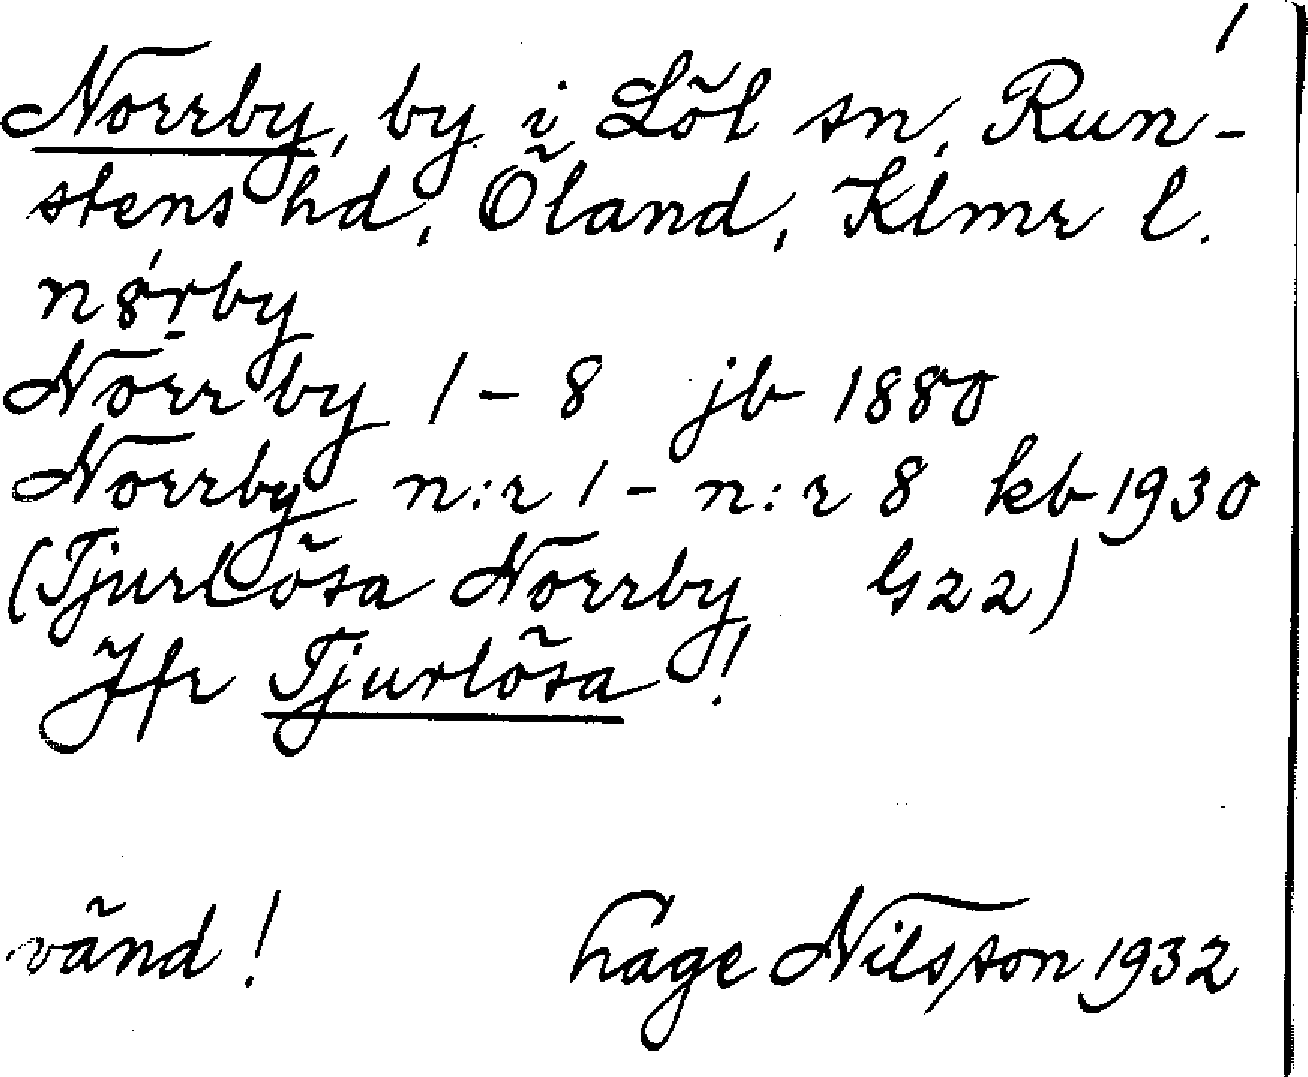 1
Norrby, by i Löt sn, Run-
stens hd, Öland, Klmr l.
Norrby 1 - 8 jb 1880
Norrby n:r 1 - n:r 8 kb 1930
(Tjurlösa Norrby G 22)
Jfr Tjurlösa!
vänd! Hage Nilsson 1932